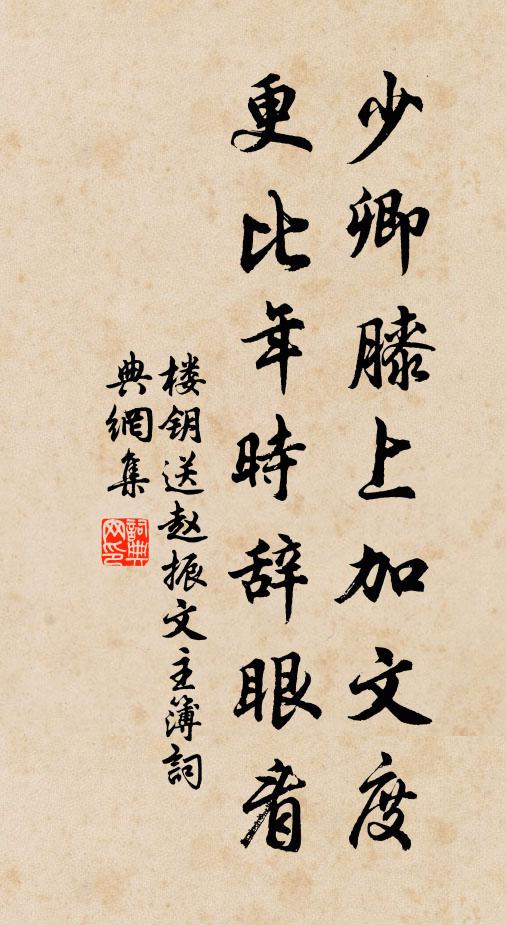 少卿膝上加文度
更比年時辞眼看
楼钥送赵振文主簿詞
典網集
詞典
网印